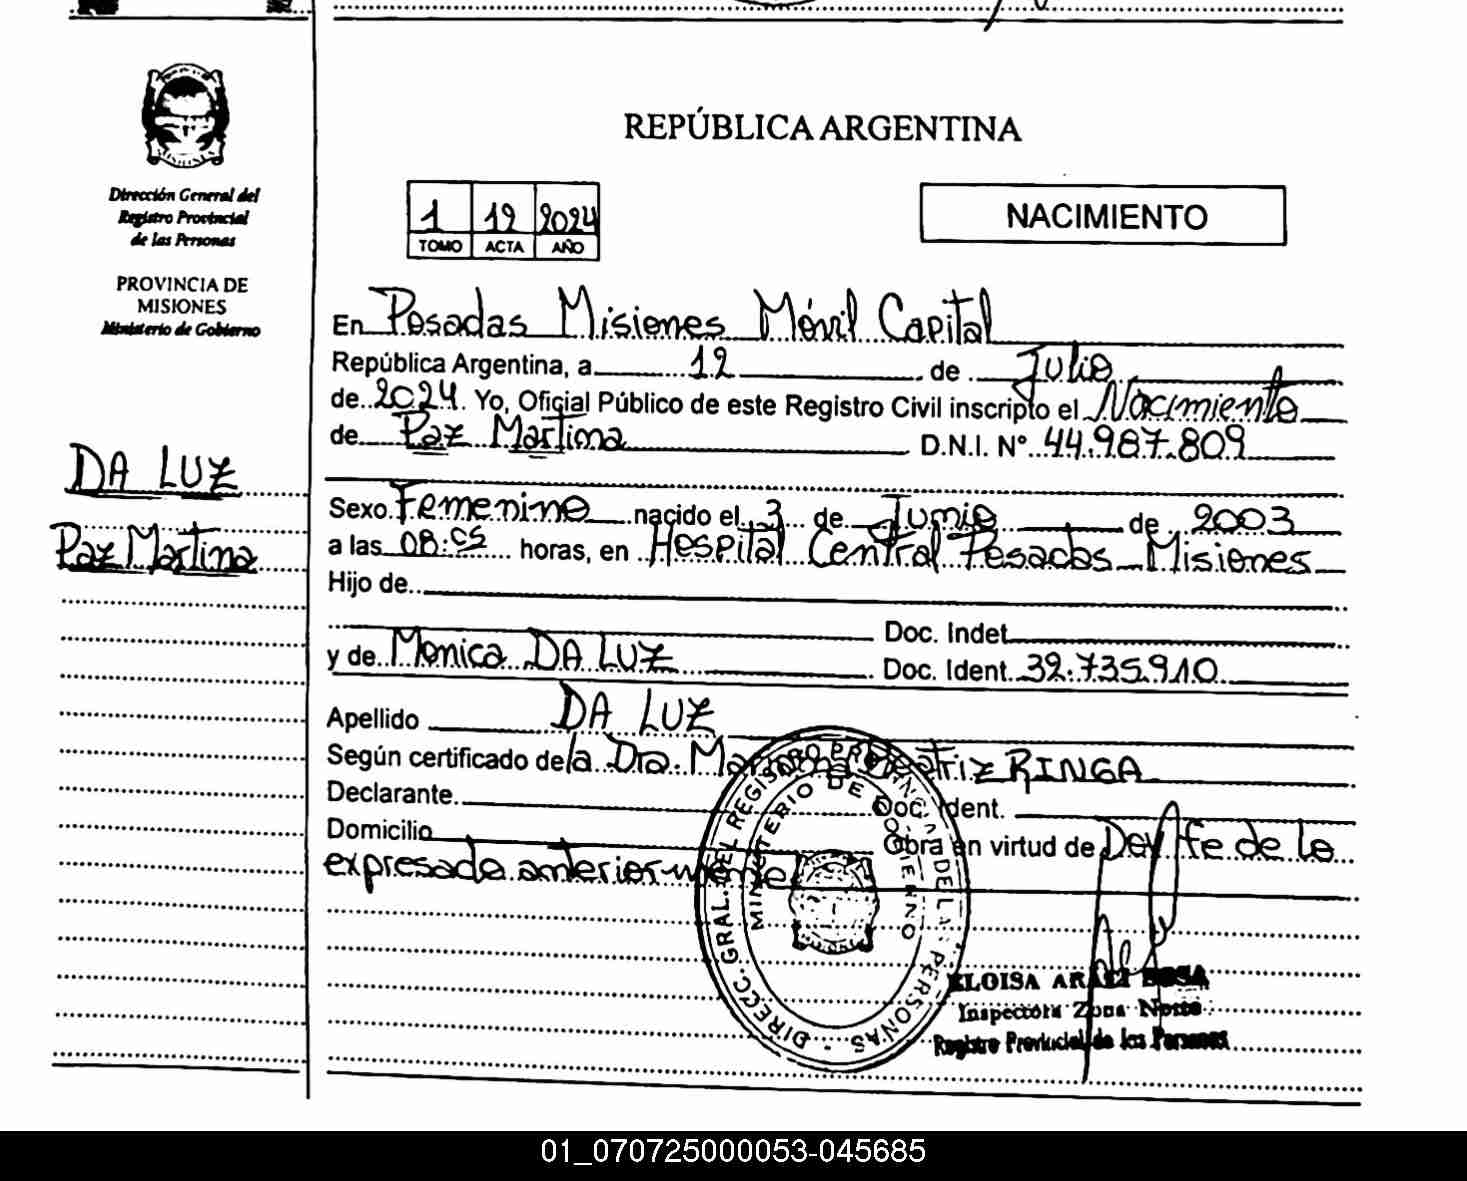 Dirección General del
Registro Provincial
de las Personas
PROVINCIA DE
MISIONES
Ministerio de Gobierno
DA LUZ
Paz Martina
REPÚBLICA ARGENTINA
1 12 2024
TOMO ACTA AÑO
NACIMIENTO
En Posadas Misiones Móvil Capital
República Argentina, a 12 de Julio
de 2024. Yo, Oficial Público de este Registro Civil inscripto el Nacimiento
de Paz Martina D.N.I. Nº 44.987.809
Sexo Femenino nacido el 3 de Junio de 2003
a las 08:05 horas, en Hospital Central Posadas Misiones
Hijo de
Doc. Indet
y de Monica DA LUZ Doc. Ident. 32.735.910
Apellido DA LUZ
Según certificado de la Dra. Mariana Beatriz RINGA
Declarante Doc. Ident.
Domicilio Obra en virtud de Doy fe de lo
expresado anteriormente
DIRECC. GRAL. DEL REGISTRO PROVINCIAL DE LAS PERSONAS
MINISTERIO DE GOBIERNO
ELOISA ARALI SOSA
Inspectora Zona Norte
Registro Provincial de las Personas
01_070725000053-045685